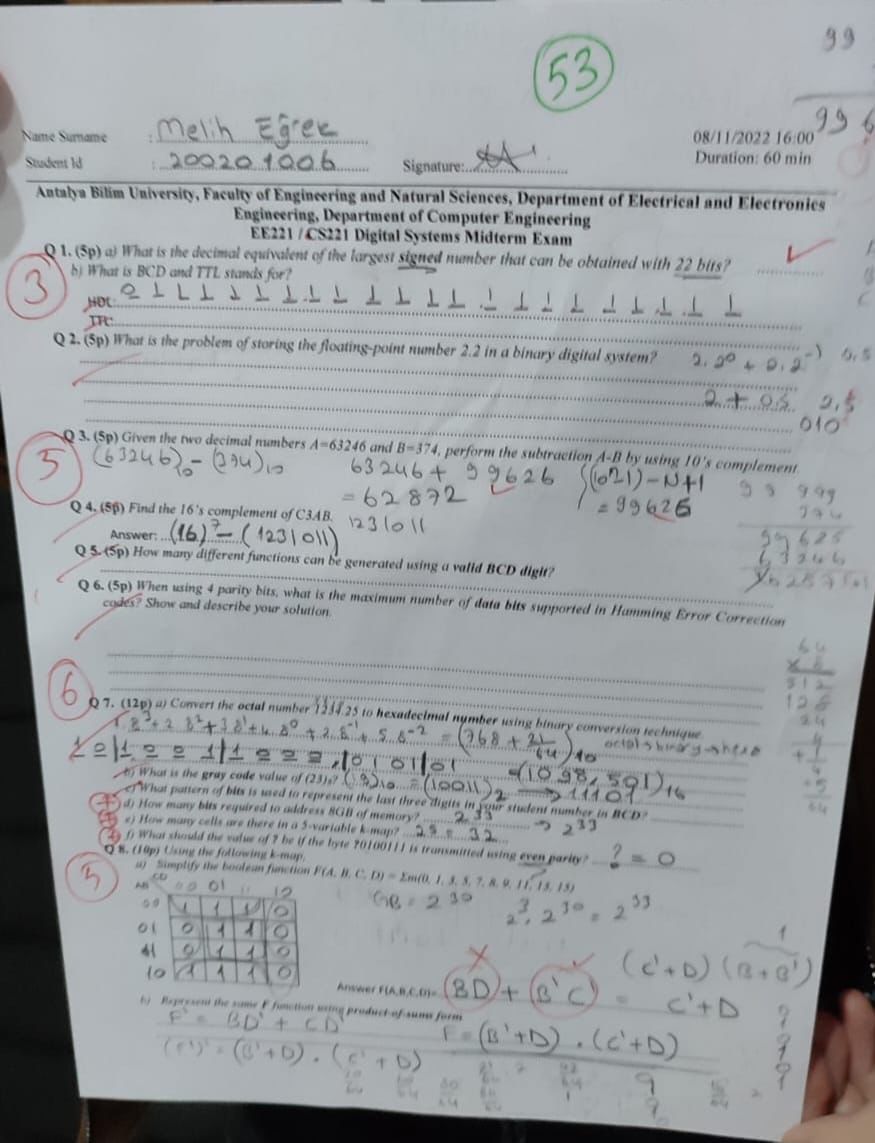 99
53
996
Name Surname : Melih Eğrek
08/11/2022 16:00
Student Id : 200201006 Signature:
Duration: 60 min
Antalya Bilim University, Faculty of Engineering and Natural Sciences, Department of Electrical and Electronics
Engineering, Department of Computer Engineering
EE221 / CS221 Digital Systems Midterm Exam
Q 1. (5p) a) What is the decimal equivalent of the largest signed number that can be obtained with 22 bits?
b) What is BCD and TTL stands for?
3
HDL:
TTC:
Q 2. (5p) What is the problem of storing the floating-point number 2.2 in a binary digital system?
2.2⁰ + 0.2⁻¹ 0,5
2 + 0.5 2,5
010
Q 3. (5p) Given the two decimal numbers A=63246 and B=374, perform the subtraction A-B by using 10's complement
5
63246 + 99626
= 62872
= 99626
Q 4. (5p) Find the 16's complement of C3AB. 1231011
Answer: (16)⁷ - (1231011)
Q 5. (5p) How many different functions can be generated using a valid BCD digit?
Q 6. (5p) When using 4 parity bits, what is the maximum number of data bits supported in Hamming Error Correction
codes? Show and describe your solution.
6
Q 7. (12p) a) Convert the octal number 1234.25 to hexadecimal number using binary conversion technique
octal > binary > hexa
b) What is the gray code value of (23)₈? (19)₁₀ = (10011)₂ → 11101
c) What pattern of bits is used to represent the last three digits in your student number in BCD?
d) How many bits required to address 8GB of memory? 233 → 2³³
e) How many cells are there in a 5-variable k-map? 2⁵ = 32
f) What should the value of ? be if the byte ?0100111 is transmitted using even parity? ? = 0
Q 8. (10p) Using the following k-map,
a) Simplify the boolean function F(A, B, C, D) = Σm(0, 1, 3, 5, 7, 8, 9, 11, 13, 15)
5
CD
AB 00 01 11 10
00 1 1 1 0
01 0 1 1 0
11 0 1 1 0
10 1 1 1 0
GB = 2³⁰
2³. 2³⁰ = 2³³
1
(C'+D) (B+B')
Answer F(A,B,C,D)= (BD) + (B'C') = C'+D
b) Represent the same F function using product-of-sums form
F' = BD' + CD'
F = (B'+D) . (C'+D)
(F')' = (B'+D) . (C'+D)